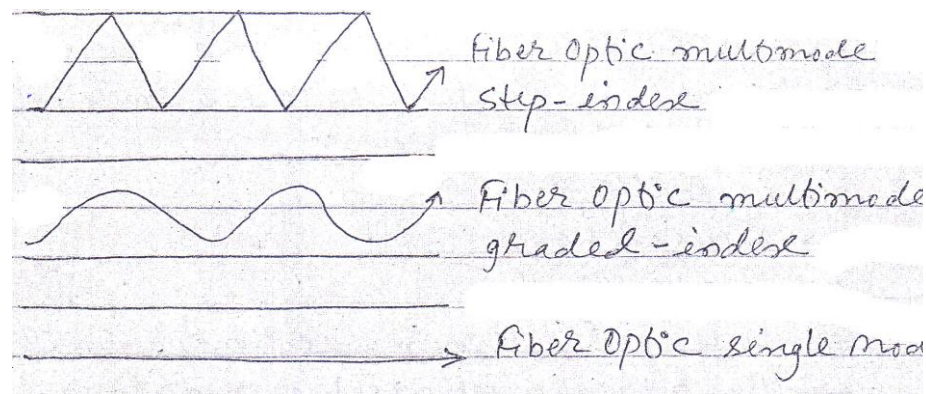 Fiber Optic multimode
Step-index
Fiber Optic multimode
graded-index
Fiber Optic single mod